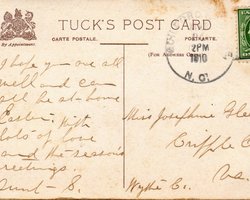 TUCK'S POST CARD
CARTE POSTALE. POSTKARTE.
By Appointment.
(For Address Only)
2PM
1910
N.C.
I hope you are all
well and can
all be at home
Easter. With
lots of love
and the season's
greetings.
Aunt E.
Miss Josephine
Cripple C
Wythe Co. Va.